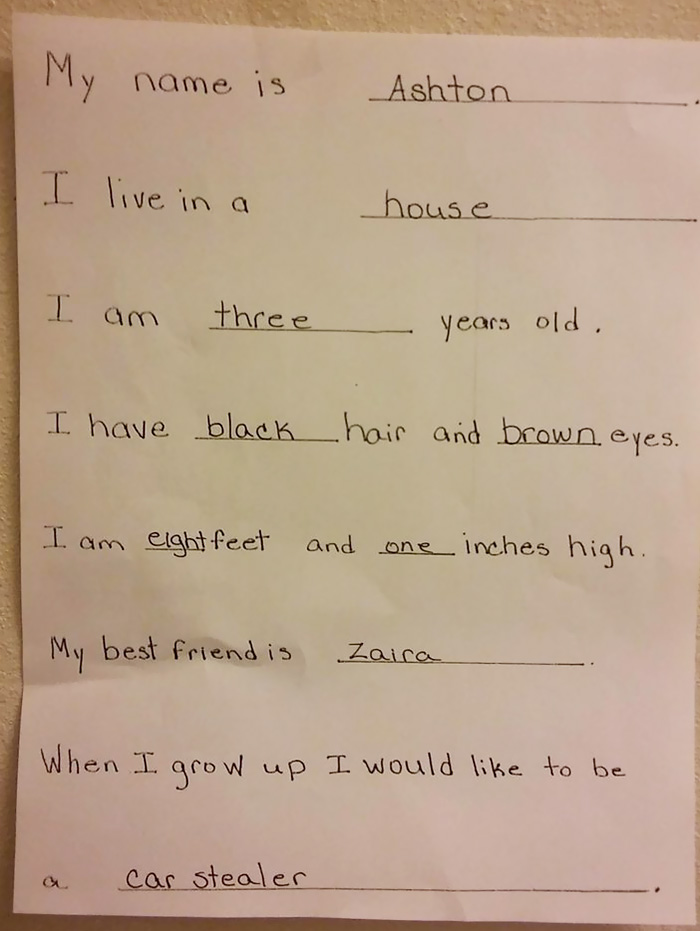 My name is Ashton.
I live in a house
I am three years old.
I have black hair and brown eyes.
I am eight feet and one inches high.
My best friend is Zaira.
When I grow up I would like to be
a car stealer.